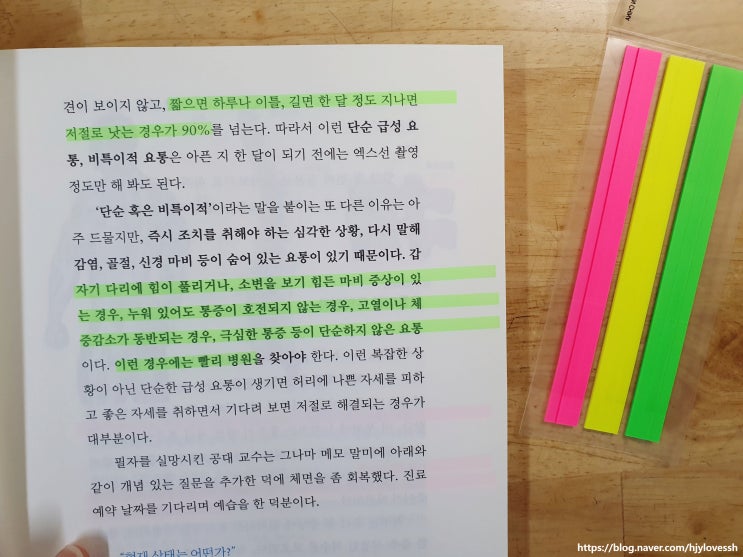 견이 보이지 않고, 짧으면 하루나 이틀, 길면 한 달 정도 지나면
저절로 낫는 경우가 90%를 넘는다. 따라서 이런 단순 급성 요
통, 비특이적 요통은 아픈 지 한 달이 되기 전에는 엑스선 촬영
정도만 해 봐도 된다.
‘단순 혹은 비특이적’이라는 말을 붙이는 또 다른 이유는 아
주 드물지만, 즉시 조치를 취해야 하는 심각한 상황, 다시 말해
감염, 골절, 신경 마비 등이 숨어 있는 요통이 있기 때문이다. 갑
자기 다리에 힘이 풀리거나, 소변을 보기 힘든 마비 증상이 있
는 경우, 누워 있어도 통증이 호전되지 않는 경우, 고열이나 체
중감소가 동반되는 경우, 극심한 통증 등이 단순하지 않은 요통
이다. 이런 경우에는 빨리 병원을 찾아야 한다. 이런 복잡한 상
황이 아닌 단순한 급성 요통이 생기면 허리에 나쁜 자세를 피하
고 좋은 자세를 취하면서 기다려 보면 저절로 해결되는 경우가
대부분이다.
필자를 실망시킨 공대 교수는 그나마 메모 말미에 아래와
같이 개념 있는 질문을 추가한 덕에 체면을 좀 회복했다. 진료
예약 날짜를 기다리며 예습을 한 덕분이다.
“현재 상태는 어떤가?”
https://blog.naver.com/hjylovessh